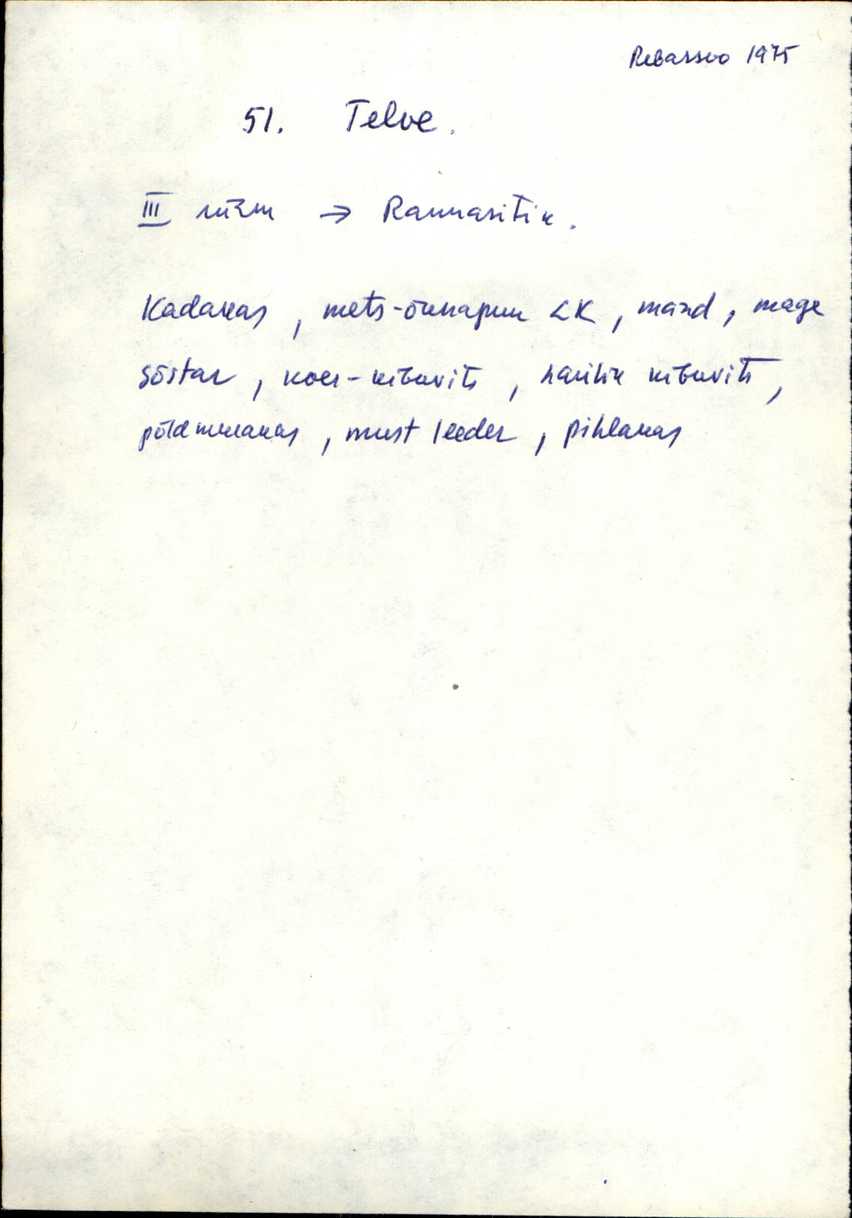 Rebassoo 1975
51. Telve.
III rühm → Rannasitik.
Kadakas, mets-õunapuu LK, mänd, mage
sõstar, koer-kibuvits, harilik kibuvits,
põldmurakas, must leeder, pihlakas